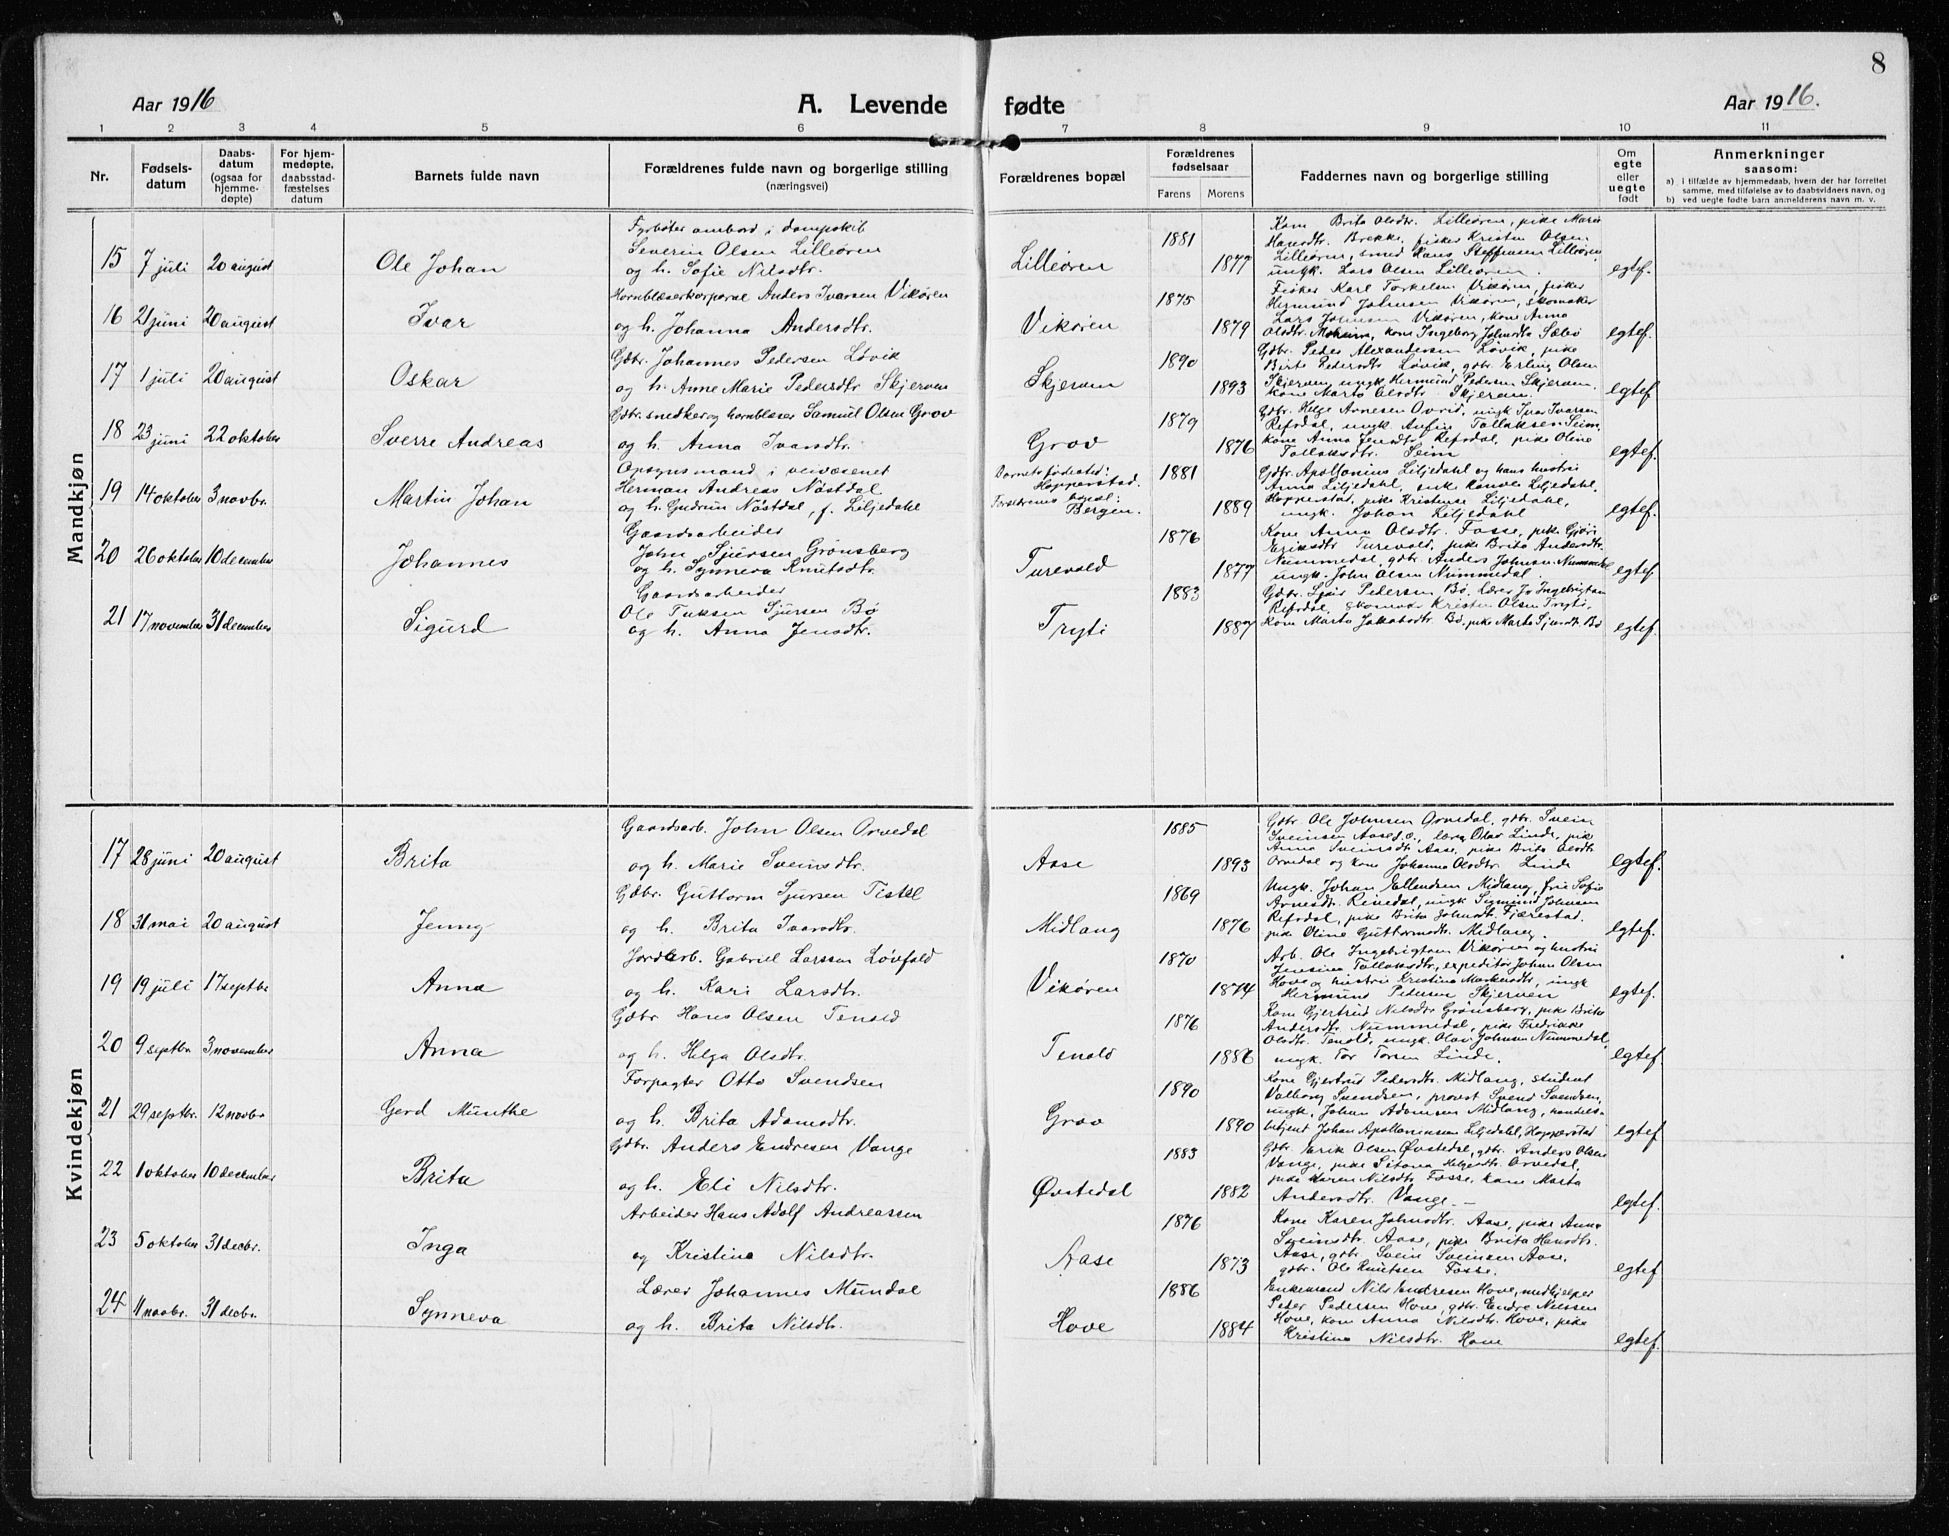 8
Aar 1916
A. Levende fødte
Aar 1916.
1 2 3 4 5 6 7 8 9 10 11
Nr.
Fødsels-
datum
Daabs-
datum
(ogsaa for
hjemme-
døpte)
For hjem-
medøpte,
daabsstad-
fæstelses
datum
Barnets fulde navn
Forældrenes fulde navn og borgerlige stilling
(næringsvei)
Forældrenes bopæl
Forældrenes
fødselsaar
Farens Morens
Faddernes navn og borgerlige stilling
Om
egte
eller
uegte
født
Anmerkninger
saasom:
a) i tilfælde av hjemmedaab, hvem der har forrettet
samme, med tilføielse av to daabsvidners navn, og
b) ved uegte fødte barn anmelderens navn m. v.
Mandkjøn
15 7 juli 20 august Ole Johan
Fyrbøter ombord i dampskib
Severin Olsen Lilleøren
og h. Sofie Nilsdtr.
Lilleøren 1881 1877
Kone Brita Olsdtr. Lilleøren, pike Marie
Hansdtr. Brekke, fisker Kristen Olsen
Lilleøren, smed Hans Steffensen Lilleøren
ungk. Lars Olsen Lilleøren.
egtef.
16 21 juni 20 august Ivar
Hornblæserkorporal Anders Ivarsen Vikøren
og h. Johanna Andersdtr.
Vikøren 1875 1879
Fisker Karl Torkelsen Vikøren, fisker
Hermund Johnsen Vikøren, skomaker
Lars Johnsen Vikøren, kone Anna
Olsdtr. kone Ingeborg Johnsdtr. Sæbø
egtef.
17 1 juli 20 august Oskar
Gdbr. Johannes Pedersen Løvik
og h. Anne Marie Pedersdtr Skjerven
Skjerven 1890 1893
Gdbr. Peder Alexandersen Løvik, pike
Birte Pedersdtr Løvik, gdbr. Erling Olsen
Skjerven, ungk Hermund Pedersen Skjerven.
kone Marta Olsdtr. Skjerven.
egtef.
18 23 juni 22 oktober Sverre Andreas
Gdbr. snedker og hornblæser Samuel Olsen Grov
og h. Anna Ivarsdtr.
Grov 1879 1876
Gdbr. Helge Arnesen Ovrid, ungk Ivar Ivarsen
Refsdal, ungk Anfin Tollaksen Seim,
kone Anna Jensdtr Refsdal, pike Oline
Tollaksdtr. Seim
egtef.
19 14 oktober 3 novbr. Martin Johan
Opsynsmand i veivæsenet
Herman Andreas Nøstdal
og h. Gudrun Nøstdal, f. Liljedahl
Barnets fødested:
Hopperstad.
Forældrenes bopæl:
Bergen.
1881 1889
Gdbr. Apollonius Liljedahl og hans hustru
Anna Liljedahl, enke Liljedahl,
Hopperstad, pike Kristense Liljedahl,
ungk. Johan Liljedahl
egtef.
20 26 oktober 10 december Johannes
Gaardsarbeider
John Sjursen Grønsberg
og h. Synneva Knutsdtr.
Turevold 1876 1877
Kone Anna Olsdtr. Fosse, pike Gjøri
Eriksdtr Turevold, pike Brita Andersdtr.
Nummedal, gdbr. Anders Johnsen Nummedal
ungk. John Olsen Nummedal
egtef.
21 17 november 31 december Sigurd
Gaardsarbeider
Ole Sjursen Bø
og h. Anna Jensdtr.
Tryti 1883 1887
Gdbr. Sjur Pedersen Bø, lærer Jo Ingebrigtsen
Refsdal, skomaker Kristen Olsen Tryti,
Kone Marta Jakobsdtr. Bø, pike Marta Sjursdtr. Bø
egtef.
Kvindekjøn
17 28 juni 20 august Brita
Gaardsarb. John Olsen Orvedal
og h. Marie Sveinsdtr.
Aase 1885 1893
Gdbr Ole Johnsen Orvedal, gdbr. Svein
Sveinsen Aase, lærer Olav Linde, pike
Anna Sveinsdtr Aase, pike Brita Olsdtr
Orvedal og kone Johanna Olsdtr. Linde
egtef.
18 31 mai 20 august Jenny
Gdbr. Guttorm Sjursen Tistel
og h. Brita Ivarsdtr.
Midlang 1869 1876
Ungk. Johan Ellendsen Midlang, frk Sofie
Arnesdtr. Rinedal, ungk Sigmund Johnsen
Refsdal, pike Brita Johnsdtr. Fjærestad.
pike Oline Guttormsdtr. Midlang.
egtef.
19 19 juli 17 septbr Anna
Jordarb. Gabriel Larssen Løvfald
og h. Kari Larsdtr.
Vikøren 1870 1874
Arb. Ole Ingebrigtsen Vikøren og hustru
Jensine Tollaksdtr, expeditør Johan Olsen
Hove og hustru Kristina Markusdtr, ungk
Hermund Pedersen Skjerven
egtef.
20 9 septbr. 3 november Anna
Gdbr Hans Olsen Tenold
og h. Helga Olsdtr.
Tenold 1876 1886
Kone Gjertrud Nilsdtr Grønsberg, pike Brita
Andersdtr. Nummedal, pike Fredrikke
Olsdtr. Tenold, ungk. Olav Johnsen Nummedal,
ungk. Tor Torsen Linde.
egtef.
21 29 septbr. 12 novbr Gerd Munthe
Forpagter Otto Svendsen
og h. Brita Adamsdtr.
Grov 1890 1890
Kone Gjertrud Pedersdtr. Midlang, student
Valborg Svendsen, provst Svend Svendsen,
ungk, Johan Adamsen Midlang, handels-
betjent Johan Apolloniussen Liljedahl, Hopperstad
egtef
22 1 oktober 10 december Brita
Gdbr. Anders Endresen Vange
og h. Eli Nilsdtr.
Øvstedal 1883 1882
Gdbr. Erik Olsen Øvstedal, gdbr. Anders Olsen
Vange, pike Helgesdtr. Orvedal,
pike Karen Nilsdtr Fosse, kone Marta
Andersdtr. Vange. –
egtef.
23 5 oktober 31 decbr. Inga
Arbeider Hans Adolf Andreassen
og Kristina Nilsdtr.
Aase 1876 1873
Kone Karen Johnsdtr. Aase, pike Anna
Sveinsdtr. Aase, pike Brita Hansdtr.
Aase, gdbr. Svein Sveinsen Aase,
gdbr. Ole Knutsen Fosse.
egtef
24 11 novbr. 31 decbr. Synneva
Lærer Johannes Mundal
og h. Brita Nilsdtr.
Hove 1886 1884
Enkemand Nils Endresen Hove, medhjelper
Peder Pedersen Hove, gdbr. Endre Nilssen
Hove, kone Anna Nilsdtr. Hove, pike
Kristina Nilsdtr. Hove
egtef.